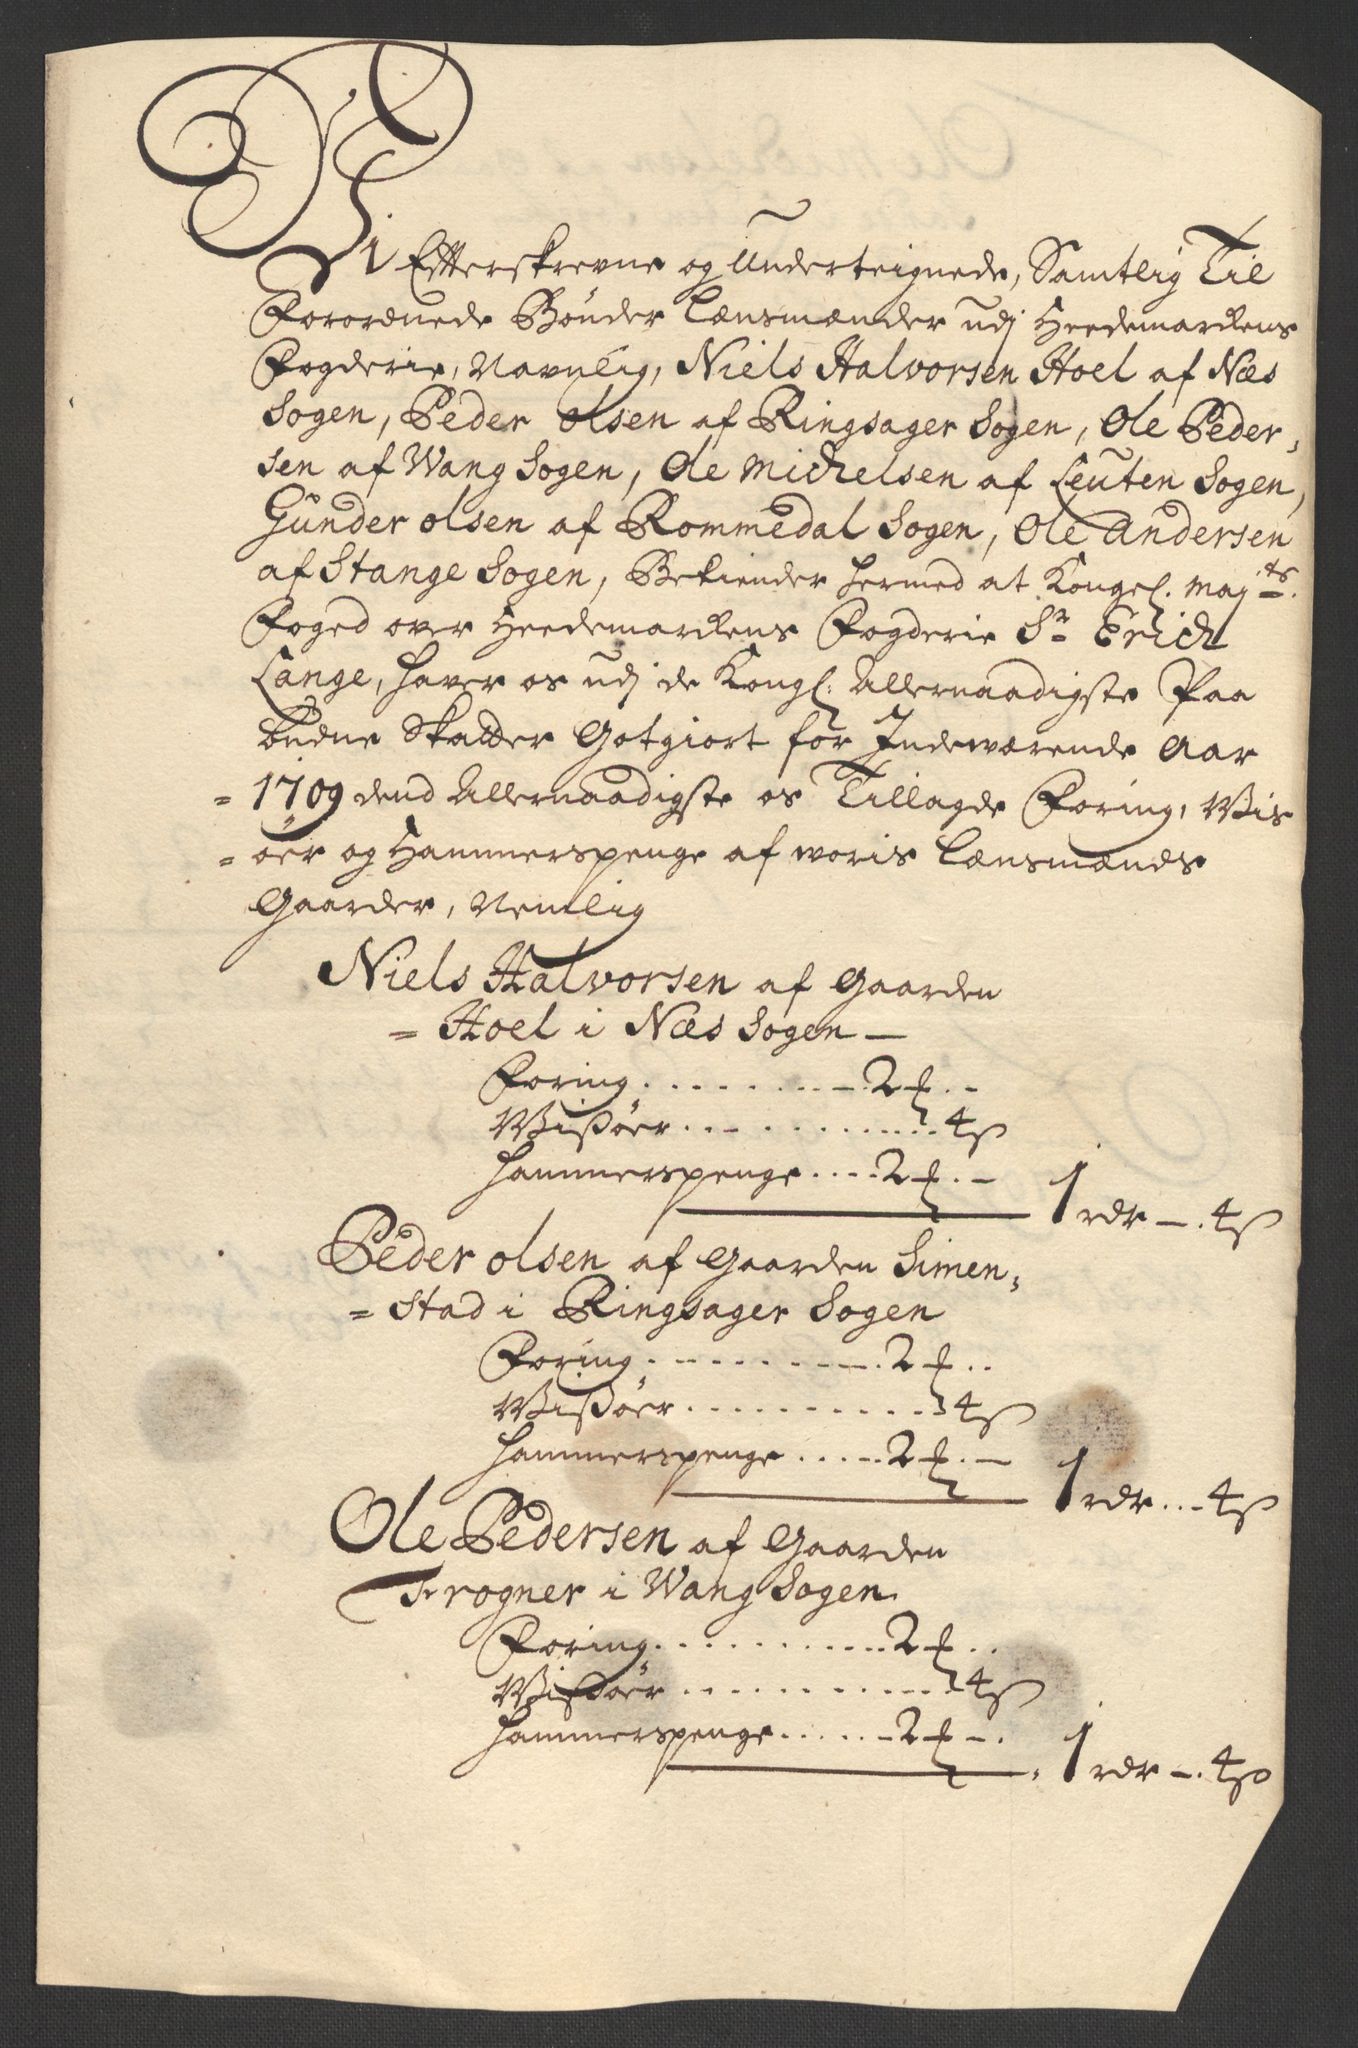 Vi Efterskrevne og Underteignede, Samtlig Til
Forordnede Bønder Lænsmænder udj Heedemarckens
Fogderie, Navnlig, Niels Halvorsen Hoel af Næs
Sogen, Peder Olsen af Ringsager Sogen, Ole Peder,
sen af Wang Sogen, Ole Michelsen af Leuten Sogen,
Gunder Olsen af Rommedal Sogen, Ole Andersen
af Stange Sogen, Bekiender hermed at Kongel. Maj:ts
Foged over Heedemarckens Fogderie Sr Erich
Lange, haver os udj de Kongl: Allernaadigste Paa
budne Skatter Gotgiort for Indewærende Aar
= 1709 dend Allernaadigste os Tillagde Foring, Wis
= ører og Hammerspenge af woris Lænsmænds
Gaarder, Nemlig
Niels Halvorsen af Gaarden
= Hoel i Næs Sogen —
Foring . . . . . . . . 2 ₰ . –
Wißører . . . . . . . . . . 4 ß
Hammerspenge . . . . 2 ₰ . – 1 rdr – . 4 ß
Peder Olsen af Gaarden Simen,
= Stad i Ringsager Sogen
Foring . . . . . . . . 2 ₰ . .
Wißører . . . . . . . . . . 4 ß
Hammerspenge . . . . . 2 ₰ . – 1 rdr . . – 4 ß
Ole Pedersen af Gaarden
Frogner i Wang Sogen
Foring . . . . . . . . . 2 ₰ . .
Wißører . . . . . . . . . . 4 ß
Hammerspenge . . . . . 2 ₰ – . 1 rdr – . 4 ß